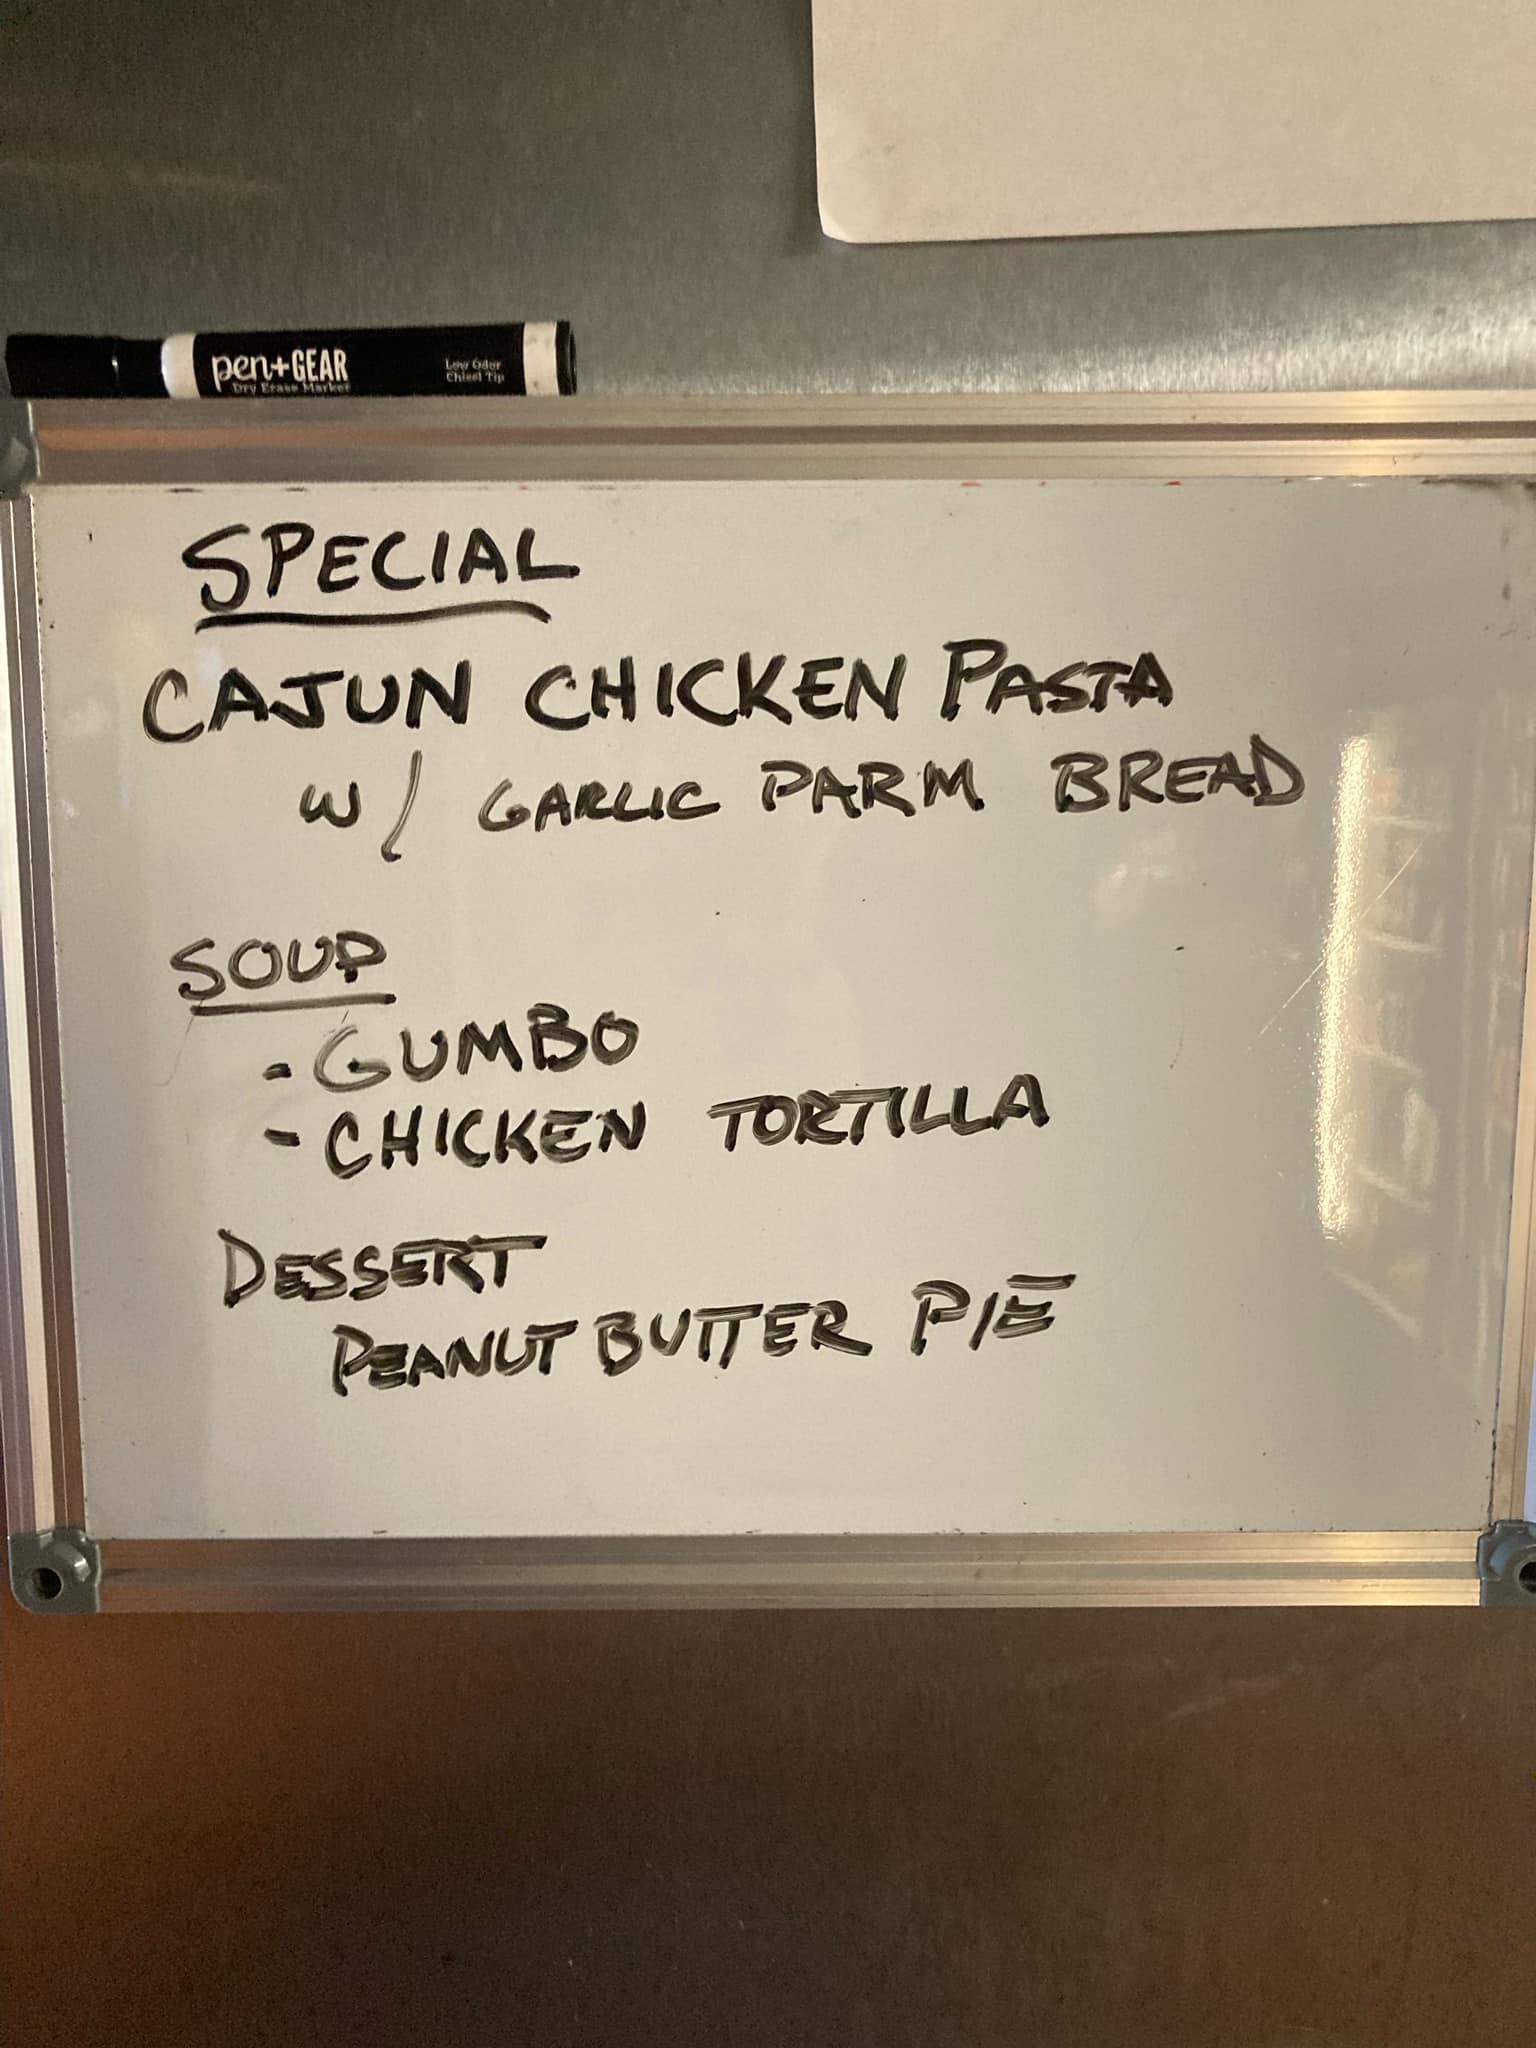 pen+GEAR
Dry Erase Marker
Low Odor
Chisel Tip
SPECIAL
CAJUN CHICKEN PASTA
W/ GARLIC PARM BREAD
SOUP
- GUMBO
- CHICKEN TORTILLA
DESSERT
PEANUT BUTTER PIE